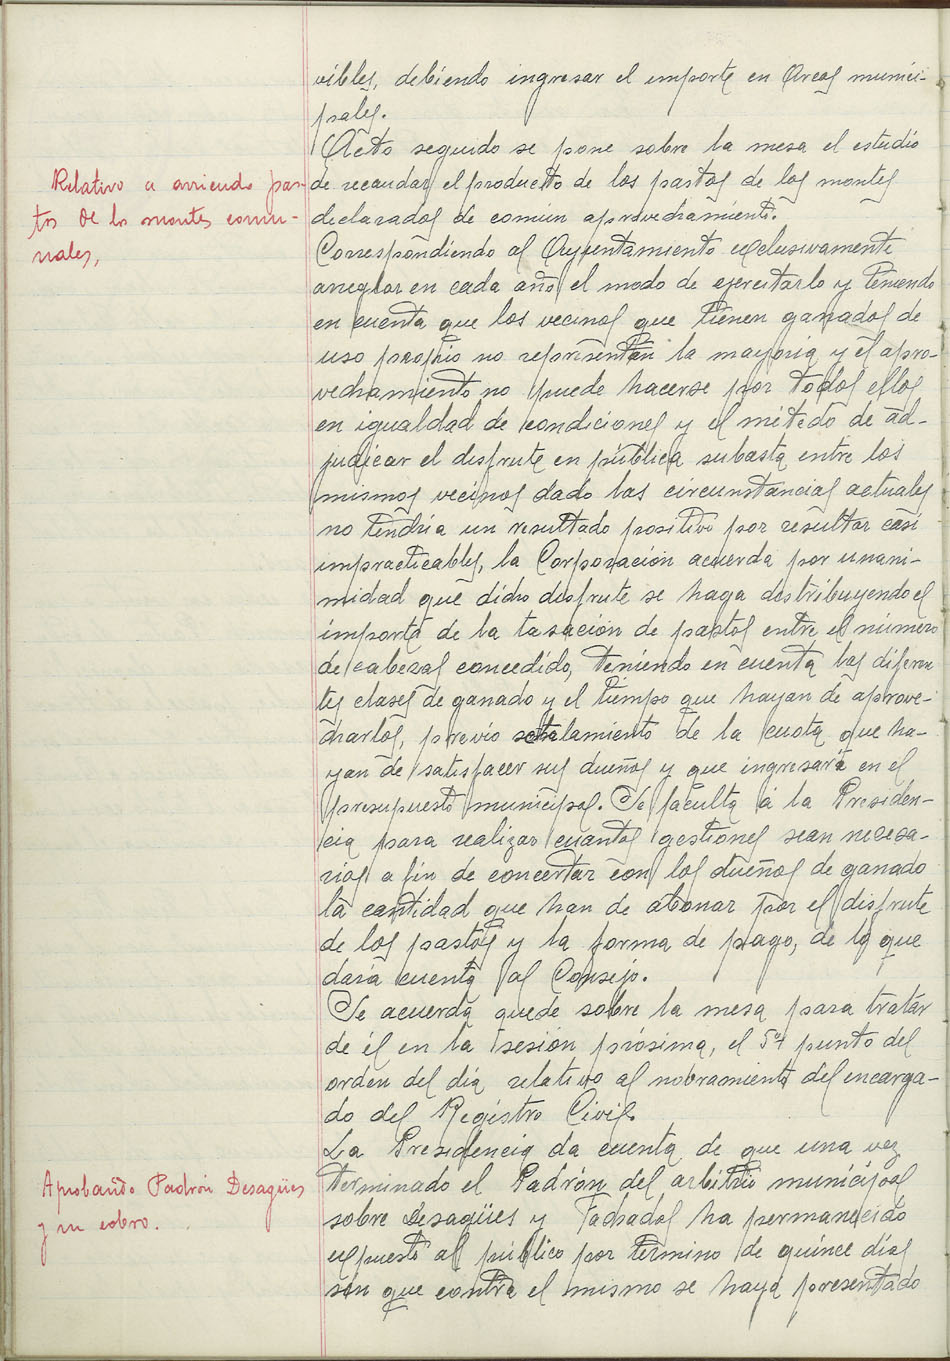 vibles, debiendo ingresar el importe en Arcas munici-
pales.
Acto seguido se pone sobre la mesa el estudio
Relativo a arriendo pas-
tos de los montes comu-
nales,
de recaudar el producto de los pastos de los montes
declarados de común aprovechamiento.
Correspondiendo al Ayuntamiento exclusivamente
arreglar en cada año el modo de ejercitarlo y teniendo
en cuenta que los vecinos que tienen ganados de
uso propio no representan la mayoria y el apro-
vechamiento no puede hacerse por todos ellos
en igualdad de condiciones y el método de ad-
judicar el disfrute en pública subasta entre los
mismos vecinos dado las circunstancias actuales
no tendria un resultado positivo por resultar casi
impracticables, la Corporación acuerda por unani-
midad que dicho disfrute se haga distribuyendo el
importe de la tasación de pastos entre el número
de cabezas concedido, teniendo en cuenta las diferen
tes clases de ganado y el tiempo que hayan de aprove-
charlos, previo señalamiento de la cuota que ha-
yan de satisfacer sus dueños y que ingresará en el
presupuesto municipal. Se faculta á la Presiden-
cia para realizar cuantas gestiones sean necesa-
rias a fin de concertar con los dueños de ganado
la cantidad que han de abonar por el disfrute
de los pastos y la forma de pago, de lo que
dará cuenta al Consejo.
Se acuerda quede sobre la mesa para tratar
de él en la sesión próxima, el 5º punto del
orden del dia relativo al nobramiento del encarga-
do del Registro Civil.
La Presidencia da cuenta de que una vez
Aprobando Padrón Desagües
y su cobro.
terminado el Padrón del arbitrio municipal
sobre desagües y Fachadas ha permanecido
expuesto al público por término de quince dias
sin que contra el mismo se haya presentado